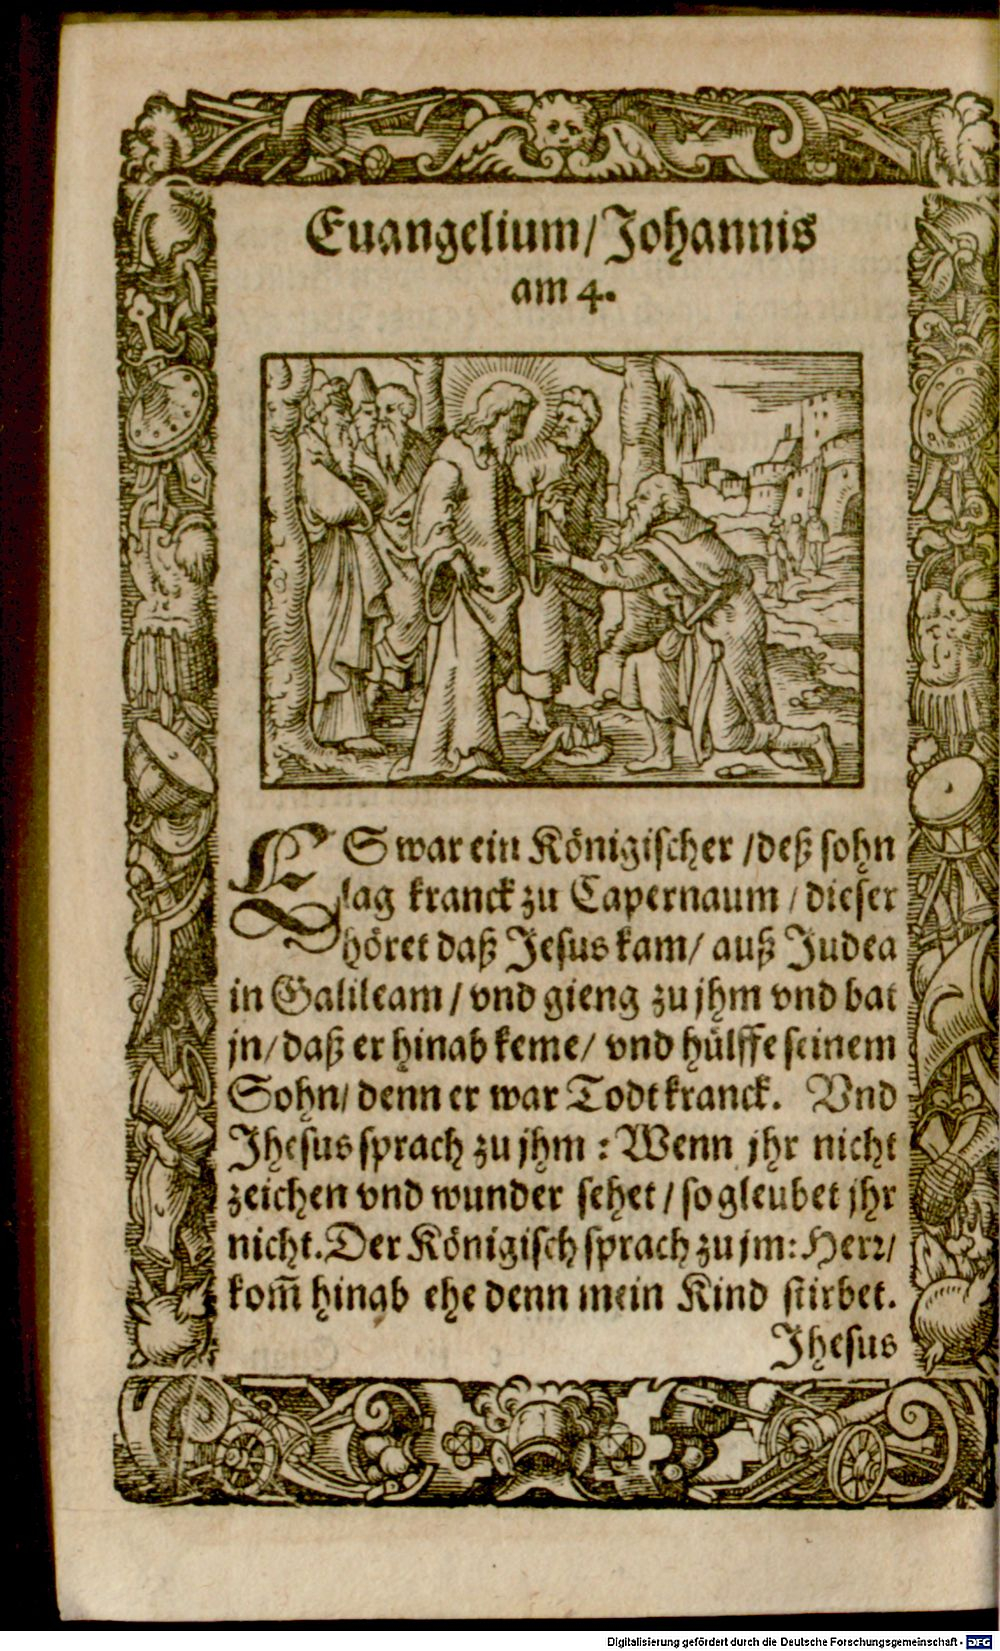 Euangelium/Johannis
am 4.
ES war ein Königischer /deß sohn
lag kranck zu Capernaum / dieser
höret daß Jesus kam/ auß Judea
in Galileam / vnd gieng zu jhm vnd bat
jn/ daß er hinab keme/ vnd hülffe seinem
Sohn/ denn er war Todtkranck. Vnd
Jhesus sprach zu jhm : Wenn jhr nicht
zeichen vnd wunder sehet / so gleubet jhr
nicht. Der Königisch sprach zu jm: Herr/
kom̃ hinab ehe denn mein Kind stirbet.
Jhesus
Digitalisierung gefördert durch die Deutsche Forschungsgemeinschaft - DFG